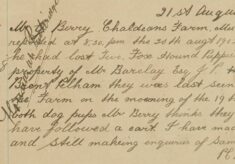 21st Augu
Mr Berry Chaldeans Farm, Me
reported at 8.30 p.m the 20th augt 190
he had lost Two, Fox Hound Pupp
property of Mr Barclay Esq J.P.
Brent Pelham they was last seen
the Farm on the morning of the 19th
both dog pups Mr Berry thinks they
have followed a cart. I have mad
and still making enquiries of Sam
P.C.